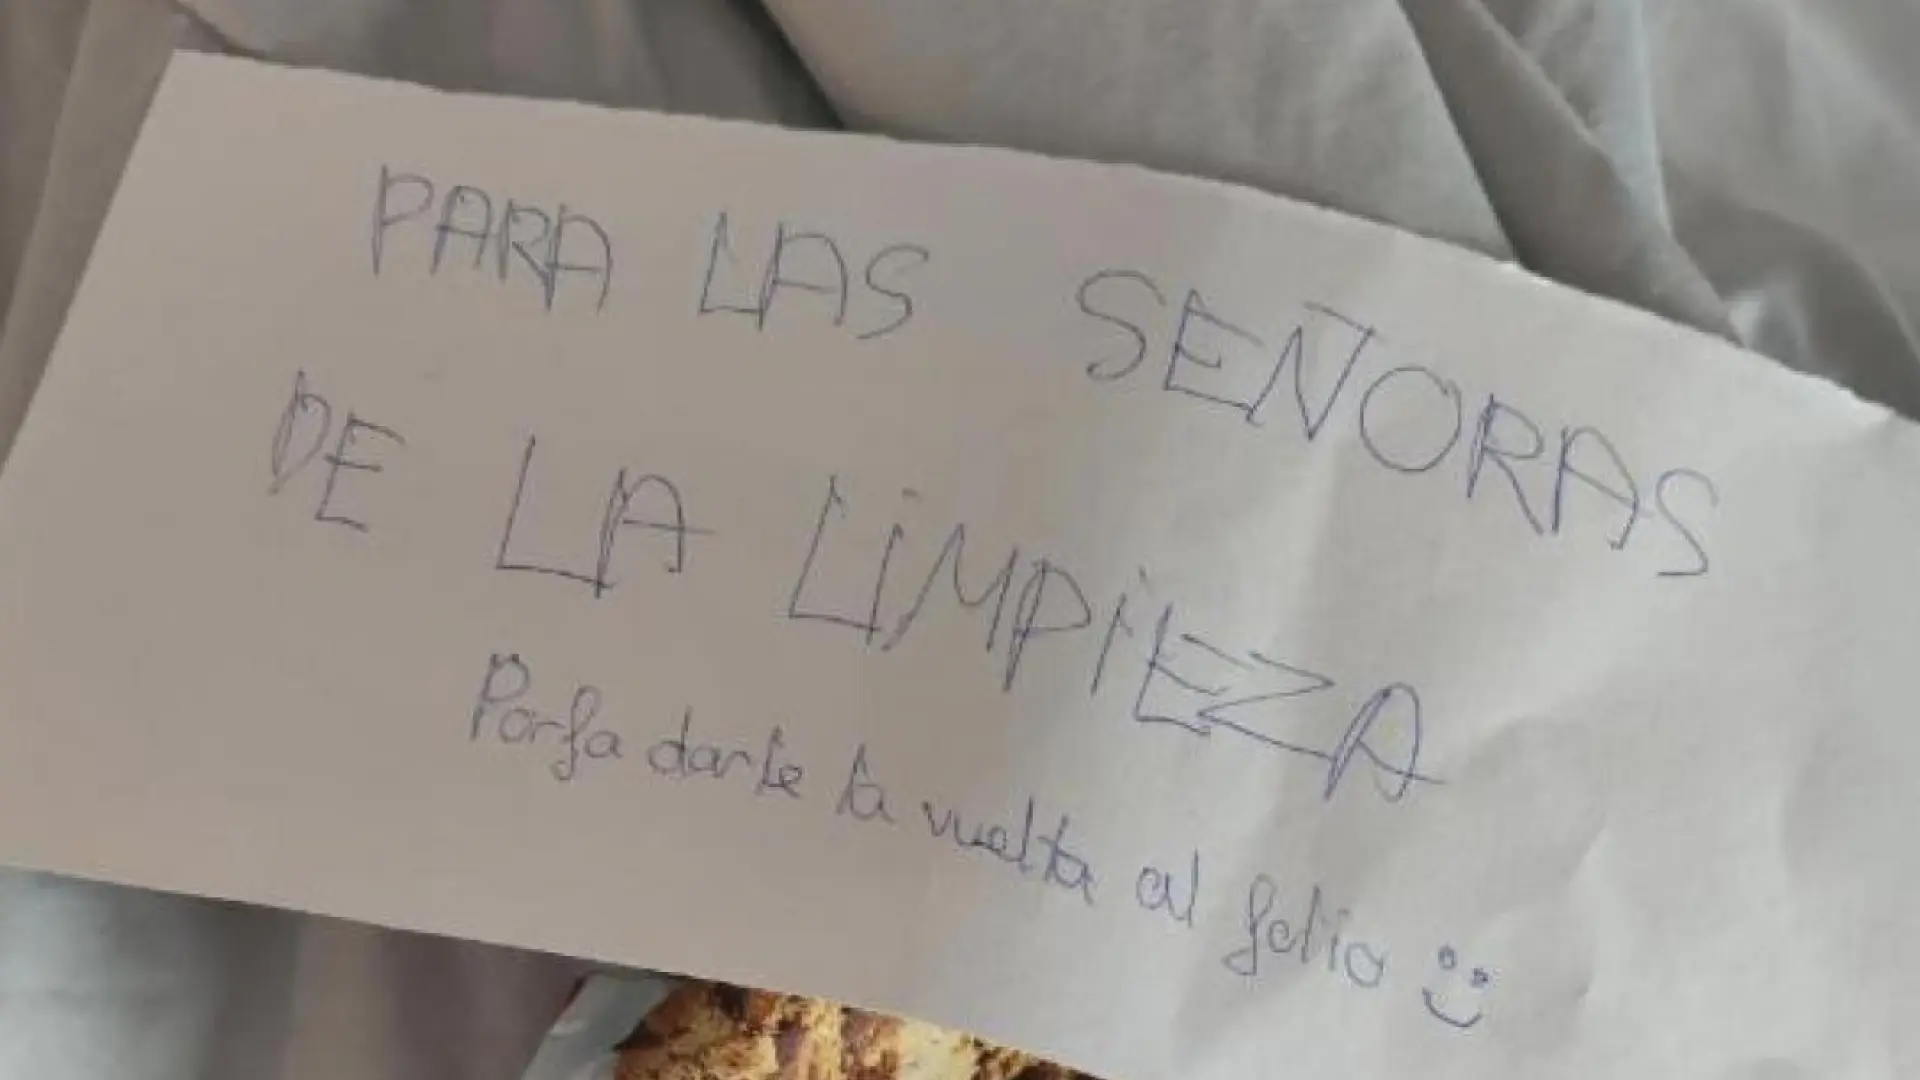 PARA LAS SEÑORAS
DE LA LIMPIEZA
Porfa darle la vuelta al folio :)